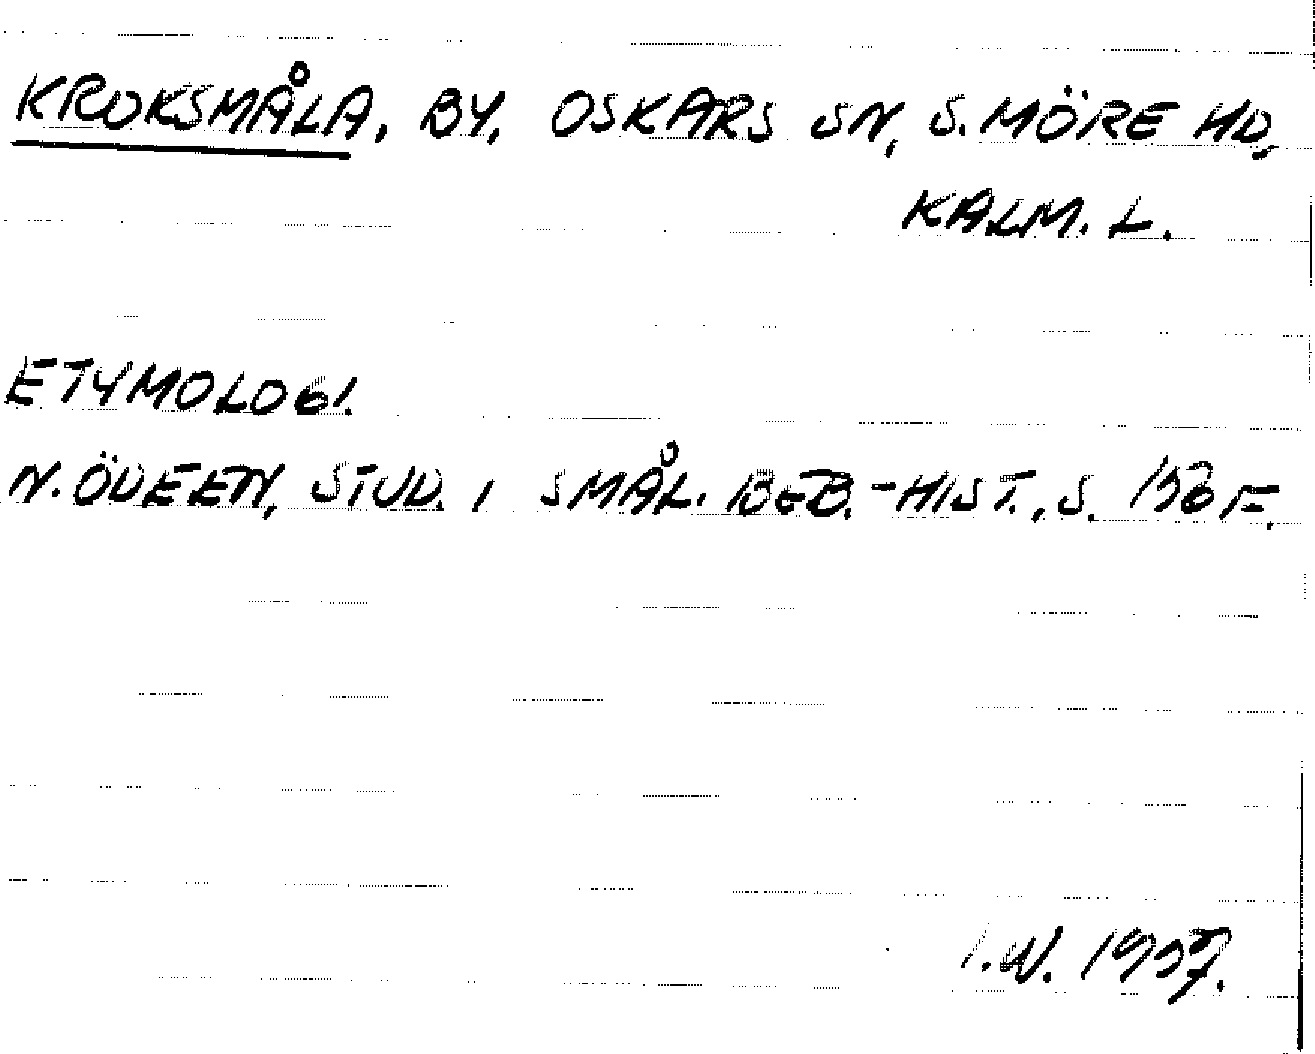 KROKSMÅLA, BY, OSKARS SN, S. MÖRE HD,
KALM. L.
ETYMOLOGI.
N. ÖDEEN, STUD. I SMÅL. BEB.-HIST., S.
I.N.